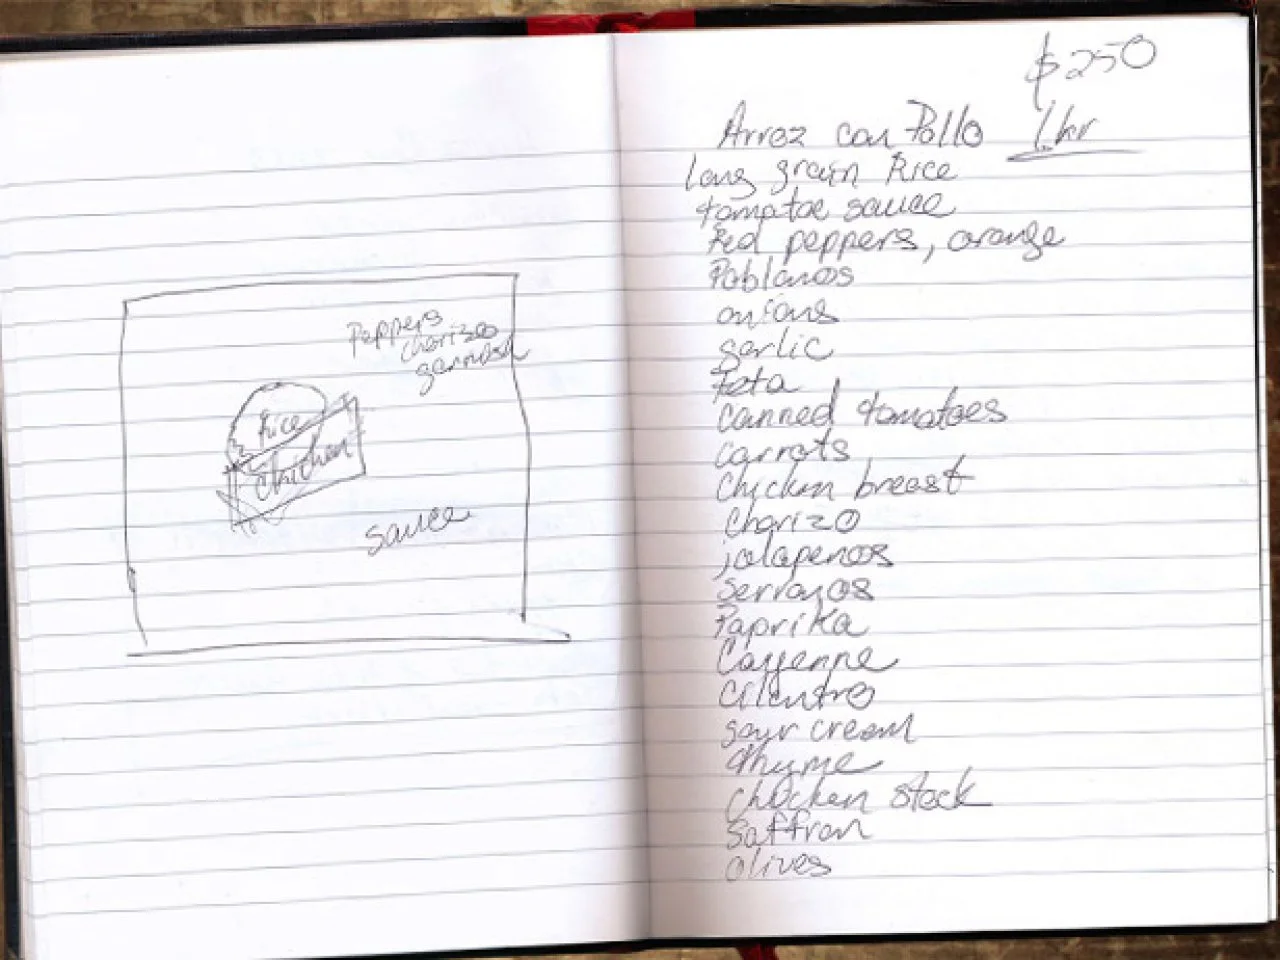 Peppers
chorizo
garnish
Rice
chicken
sauce
$250
Arroz con Pollo 1 hr
long grain Rice
tomatoe sauce
Red peppers, orange
Poblanos
onions
garlic
feta
canned tomatoes
carrots
chicken breast
chorizo
jalapenos
serranos
Paprika
Cayenne
cilantro
sour cream
thyme
chicken stock
saffron
olives